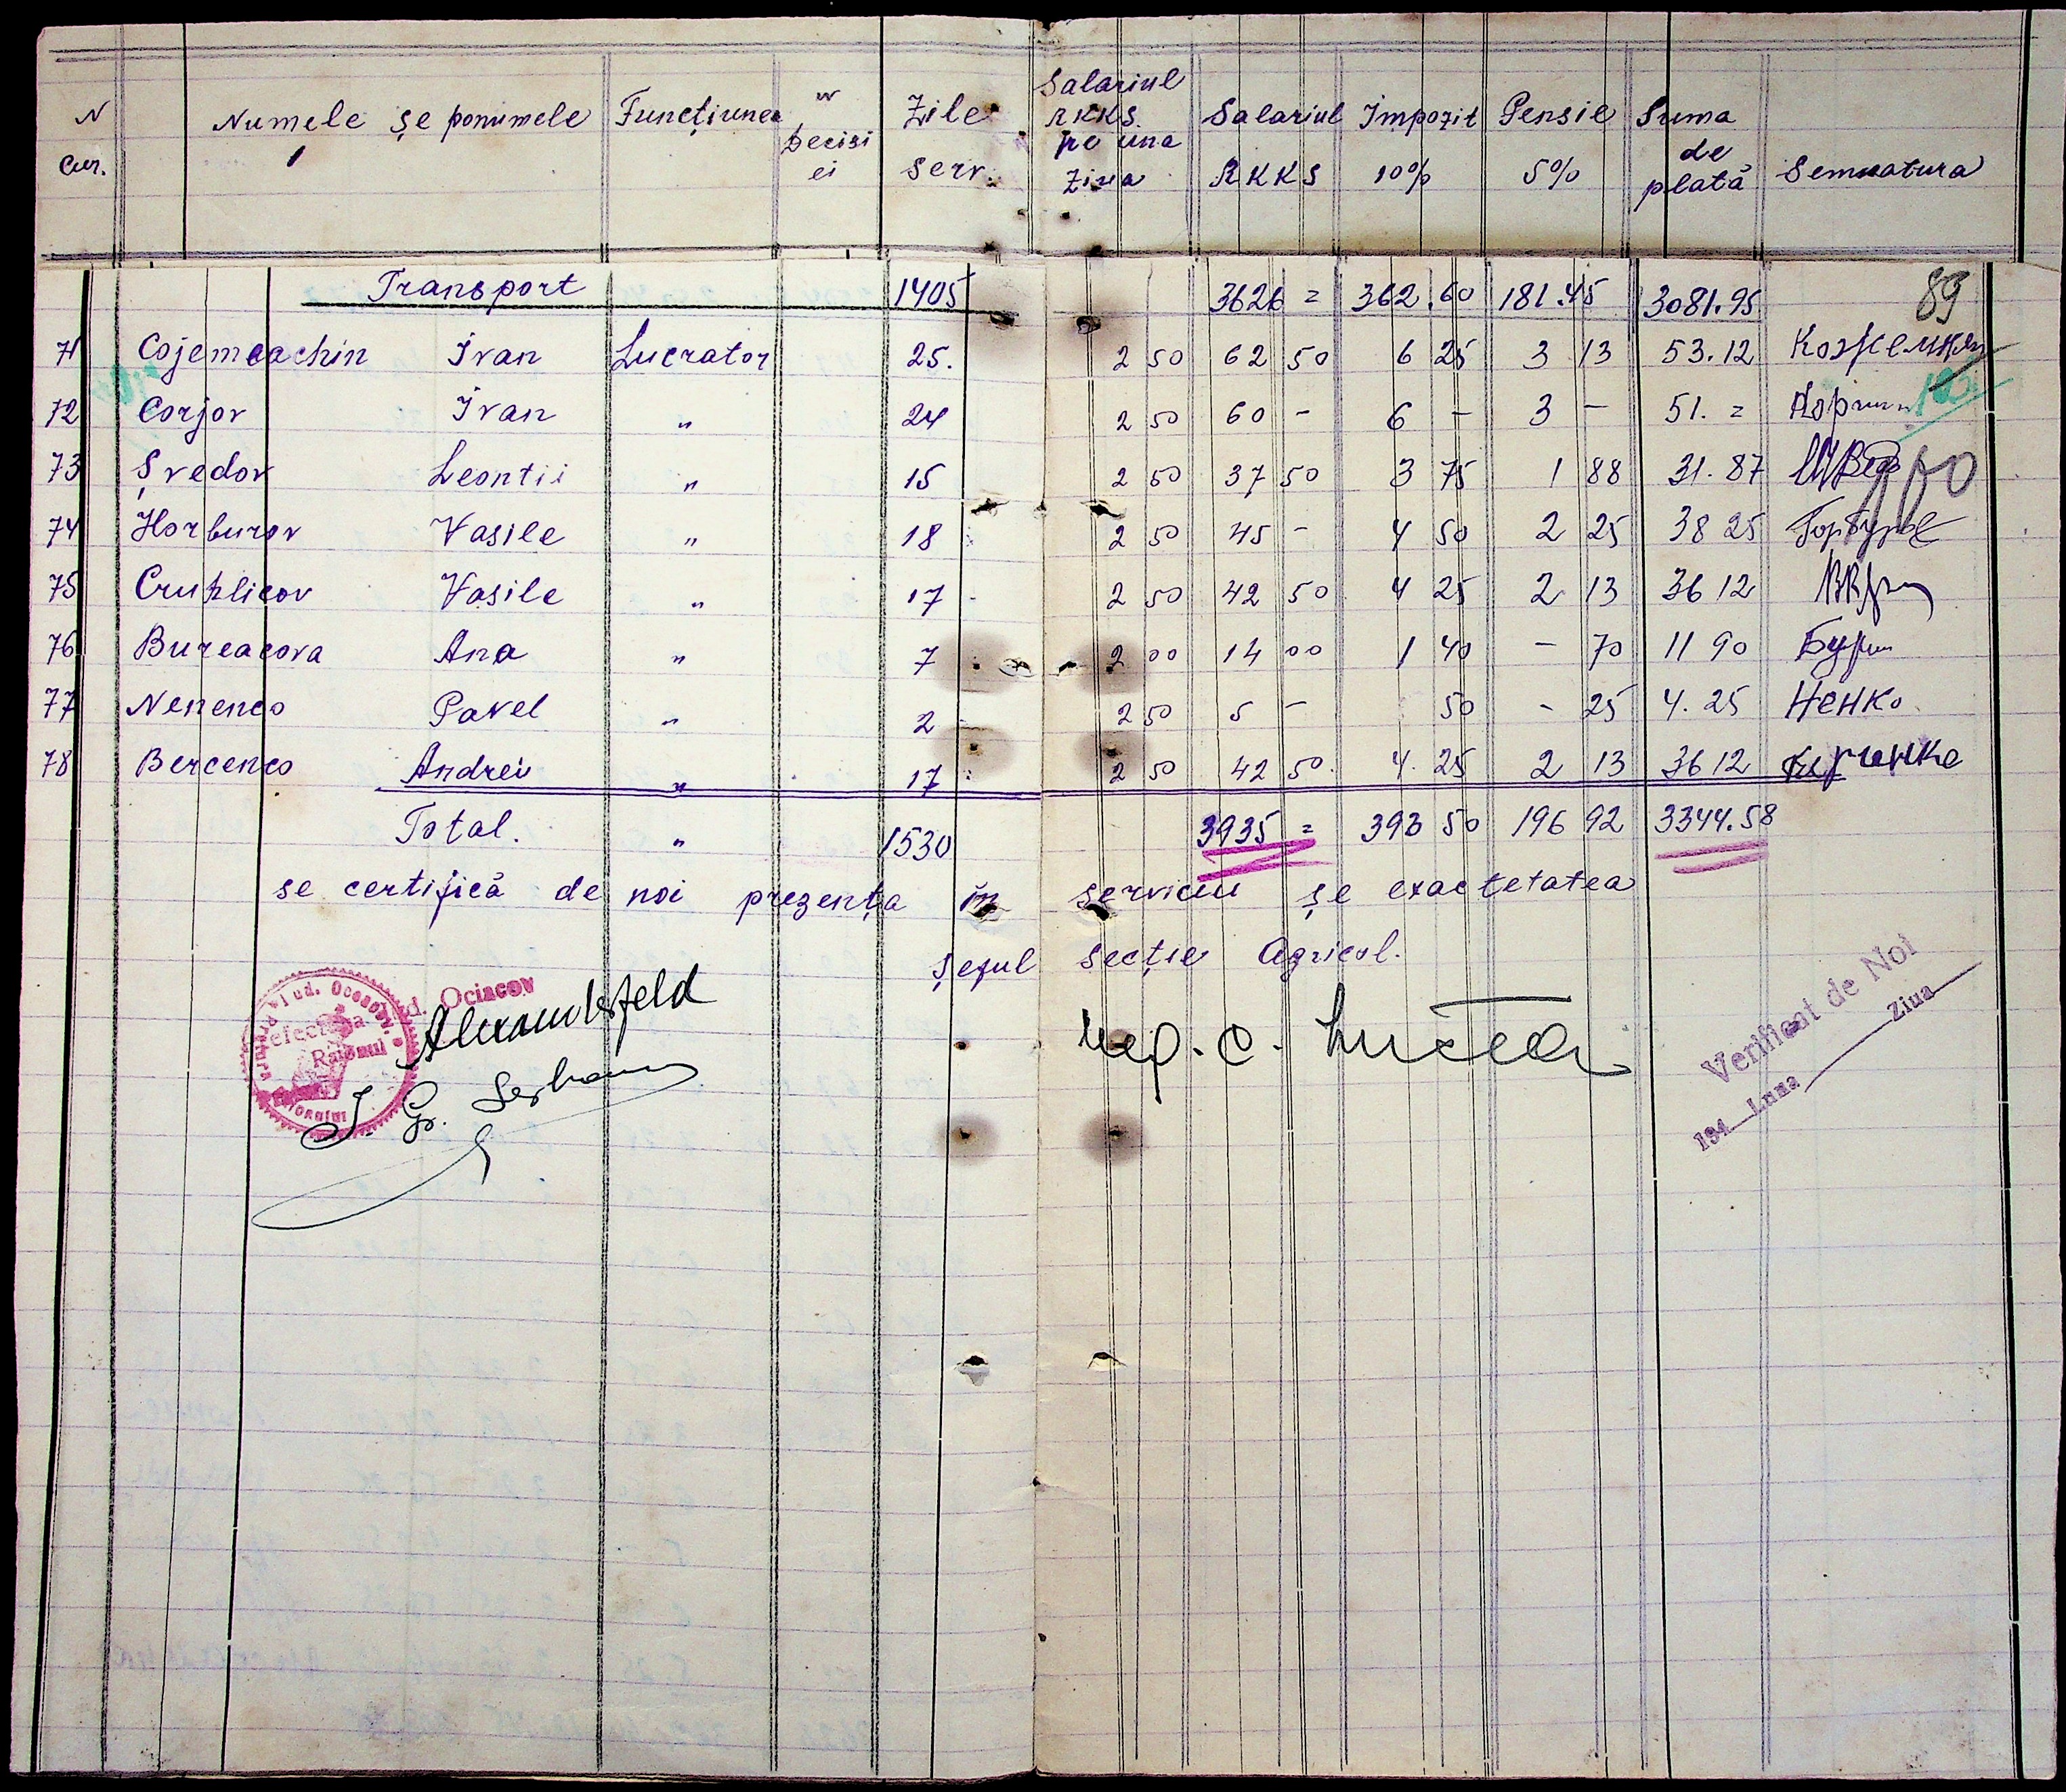 N cur. Numele șe ponumele Funcțiunea N Decisiei Zile serv. Salariul RKKS. pe una Ziua Salariul RKKS Impozit 10% Pensie 5% Suma de plată Semnatura
89
Transport 1405 3626 = 362.60 181.45 3081.95
71 Cojemeachin Ivan Lucrator 25. 2 50 62 50 6 25 3 13 53.12 Кожемяк
72 Corjov Ivan " 24 2 50 60 - 6 - 3 - 51. =
73 Șvedov Leontii " 15 2 50 37 50 3 75 1 88 31.87 Швед
74 Horburov Vasile " 18 2 50 45 - 4 50 2 25 38 25 Горбуров
75 Cruhlicov Vasile " 17 - 2 50 42 50 4 25 2 13 36 12
76 Bureacova Ana " 7 2 00 14 00 1 40 - 70 11 90
77 Nenenco Pavel " 2 2 50 5 - 50 - 25 4.25 Ненко
78 Bercenco Andrei " 17 2 50 42 50. 4.25 2 13 36 12
Total. " 1530 3935 = 393 50 196 92 3344.58
se certifică de noi prezența în serviciu șe exactetatea
Șeful secție Agricol.
Prefectura Jud. Ociacov
Raionul
Alexandrfeld
Verificat de Noi
194 Luna Ziua